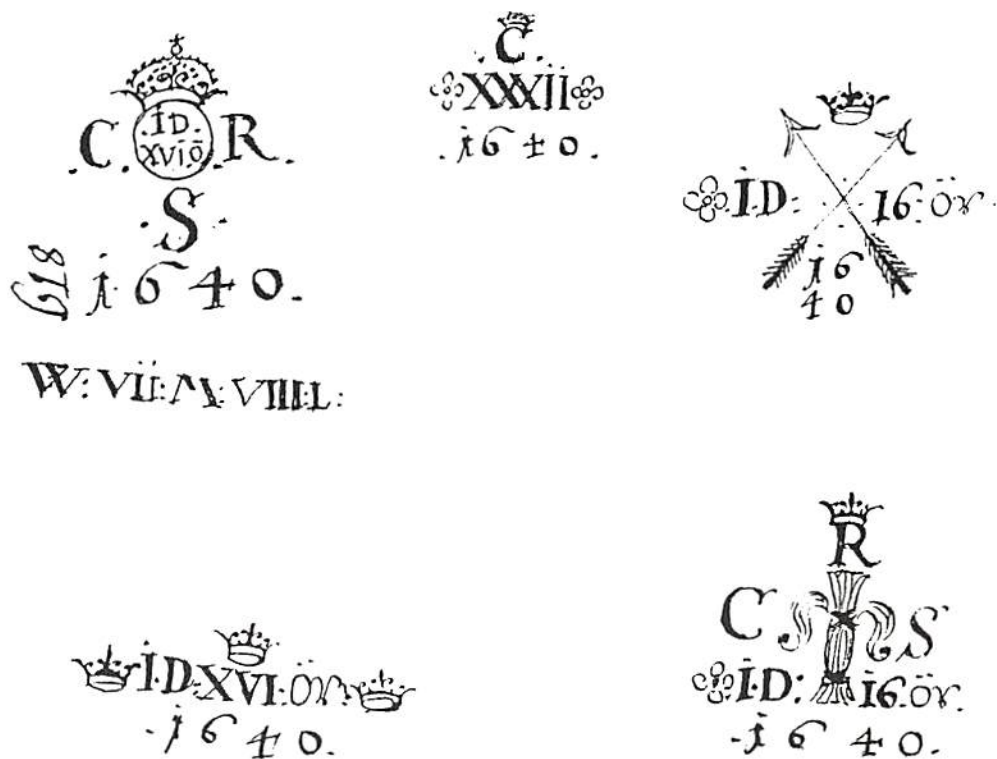 .ID.
XVIÖ
.C. R.
.S.
618
1640.
W: VII: M: VIIII:L:
.C.
XXXII
.1640.
I.D: 16: ÖR.
16
40
I.D: XVI: ÖR.
.1640.
R
C S
I.D: 16. ÖR.
.1640.